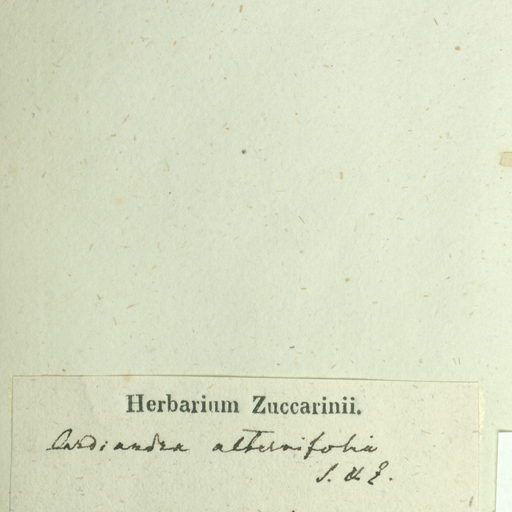 Herbarium Zuccarinii.
Cardiandra alternifolia
S. & Z.